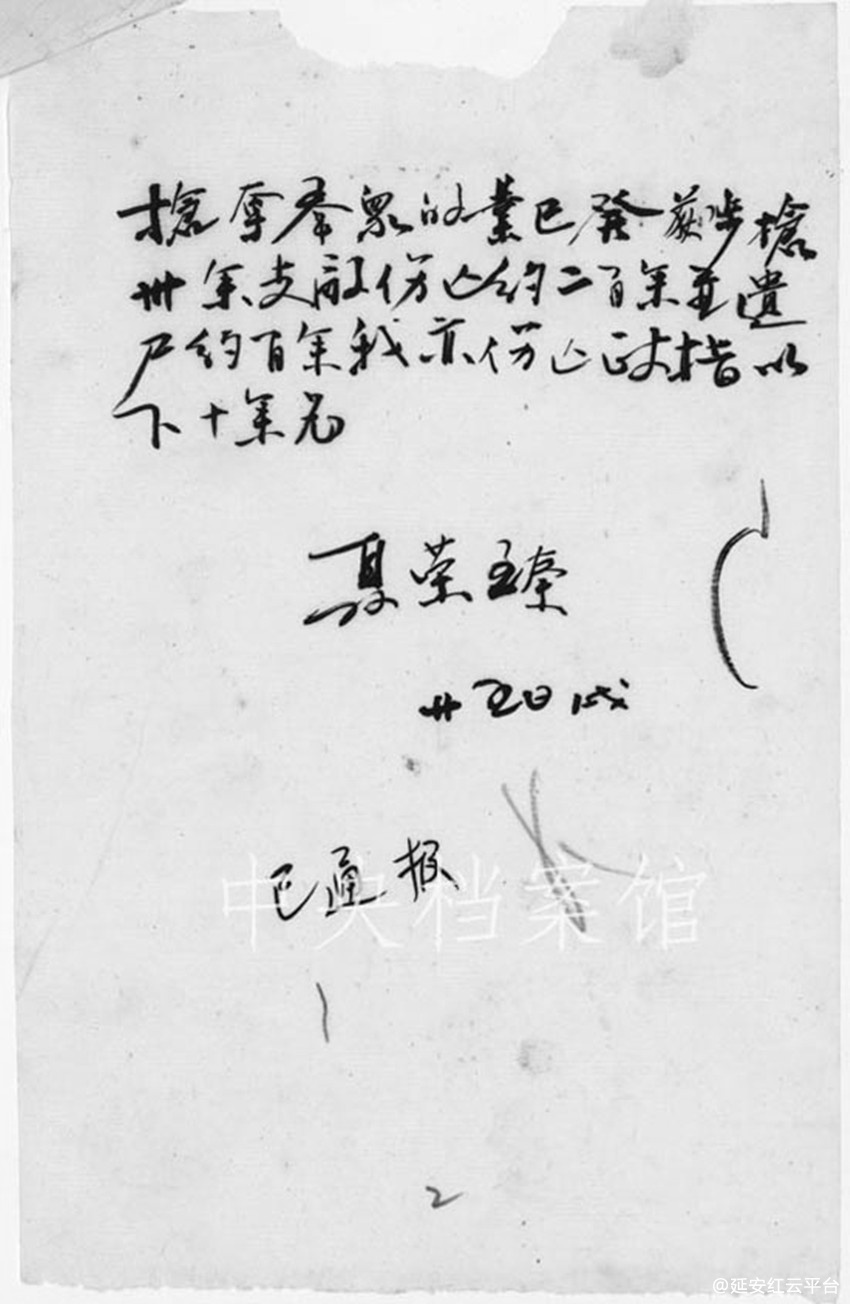 抢夺羣众的业已发获步枪
卅余支敌伤亡约二百余並遗
尸约百余我亦伤亡政指以
下十余元
聂荣臻
廿五日戌
已通报
中央档案馆
2
@延安红云平台